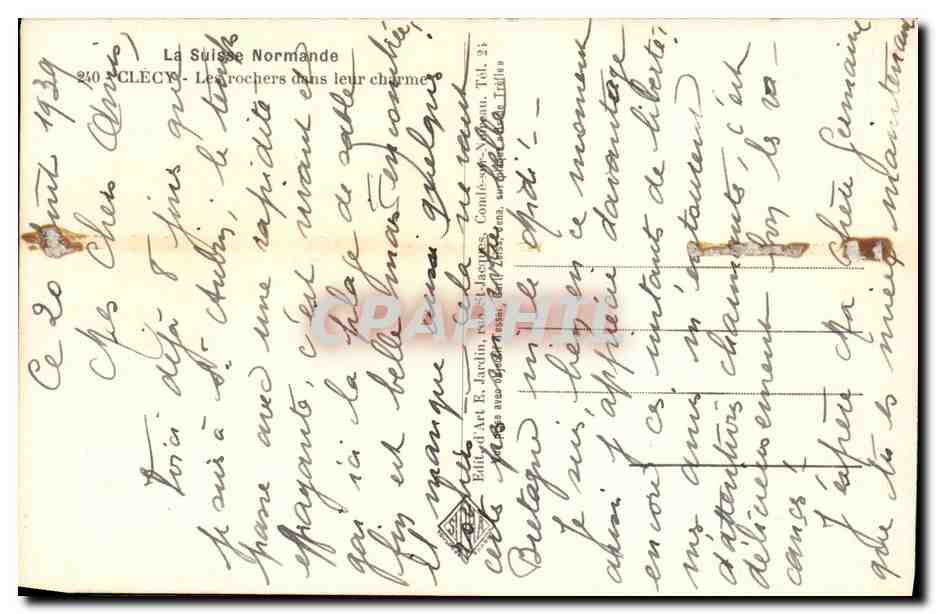 La Suisse Normande
240 - CLÉCY - Les rochers dans leur charme
Edit. d'Art E. Jardin, rue St-Jacques, Condé-sur-Noireau. Tél. 24
CPARAMA
Ce 20 Août 1939
Mes Chers Amis,
Voici déjà 8 jours que
je suis à St-Aubin, le temps
passe avec une rapidité
effrayante, c'est vivant et
gai ici la plage de sable
fin est belle mais encombrée
et manque
certes pas
Bretagne
Je suis bien en ce moment
aussi j'apprécie davantage
encore ces instants de liberté,
mes amis m'entourent
d'attentions charmantes, c'est
délicieusement bon les va-
cances
J'espère Ma Chère Germaine
que tu es mieux maintenant